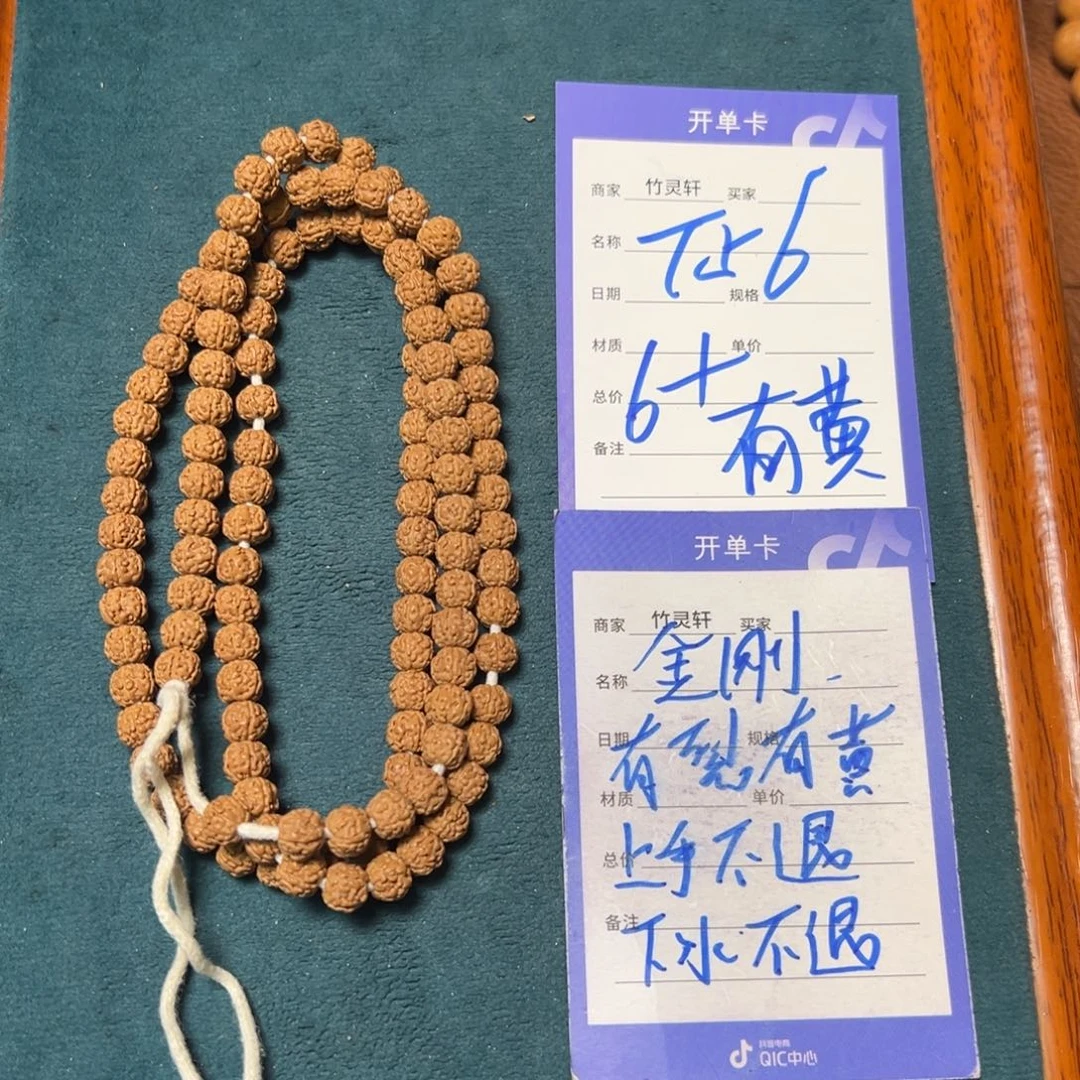 开单卡
商家 竹灵轩 买家
名称
6
日期 规格
材质 单价
6+
总价
有黄
备注
开单卡
商家 竹灵轩 买家
金刚
名称
日期 规格
有裂有黄
材质 单价
上手不退
总价
备注
下水不退
抖音电商
QIC中心